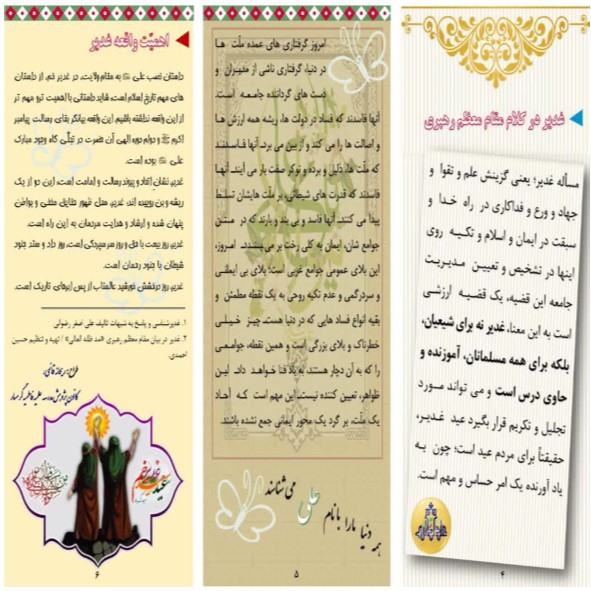 غدیر در کلام مقام معظم رهبری
مسأله غدیر؛ یعنی گزینش علم و تقوا و
جهاد و ورع و فداکاری در راه خدا و
سبقت در ایمان و اسلام و تکیه روی
اینها در تشخیص و تعیین مدیریت
جامعه این قضیه، یک قضیه ارزشی
است به این معنا، غدیر نه برای شیعیان،
بلکه برای همه مسلمانان، آموزنده و
حاوی درس است و می تواند مورد
تجلیل و تکریم قرار بگیرد عید غدیر،
حقیقتاً برای مردم عید است؛ چون به
یاد آورنده یک امر حساس و مهم است.
۴
امروز گرفتاری های عمده ملّت ها
در دنیا، گرفتاری ناشی از مدیران و
دست های گرداننده جامعه است.
آنها فاسدند که فساد در دولت ها، ریشه همه ارزش ها
و اصالت ها را می کند و از بین می برد. آنها فاسدند
که ملّت ها، ذلیل و برده و نوکر صفت بار می آیند. آنها
فاسدند که قدرت های شیطانی، بر ملّت هایشان تسلط
پیدا می کنند. آنها فاسد و بی بند و بارند که در متن
جوامع شان، ایمان به کلی رخت بر می بندد. امروز،
این بلای عمومی جوامع غربی است؛ بلای بی ایمانی
و سردرگمی و عدم تکیه روحی به یک نقطه مطمئن و
بقیه انواع فساد هایی که در دنیا هست. چیز خیلی
خطرناک و بلای بزرگی است و همین نقطه، جوامعی
را که به آن دچار هستند، به باد فنا خواهد داد. این
ظواهر، تعیین کننده نیست. این مهم است که آحاد
یک ملّت، بر گرد یک محور ایمانی جمع نشده باشند.
همه دنیا ما را با نام علی می شناسند
۵
اهمیّت واقعه غدیر
داستان نصب علی به مقام ولایت، در غدیر خم، از داستان
های مهم تاریخ اسلام است، شاید داستانی با اهمیت تر و مهم تر
از این واقعه نداشته باشیم. این واقعه بیانگر بقای رسالت پیامبر
اکرم و دوام دوره الهی آن حضرت در تجلّی گاه وجود مبارک
علی بوده است.
غدیر، نشان اتحاد و پیوند رسالت و امامت است، این دو از یک
ریشه و بن روییده اند، غدیر، محل ظهور حقایق مخفی و بواطن
پنهان شده و ارشاد و هدایت مردمان به این راه است.
غدیر، روز بیعت با حق و روز سرسپردگی است، روز داد و ستد جنود
شیطان با جنود رحمان است.
غدیر، روز درخشش خورشید عالمتاب از پس ابرهای تاریک است.
۱. غدیرشناسی و پاسخ به شبهات تالیف علی اصغر رضوانی
۲. غدیر در بیان مقام معظم رهبری «مد ظله العالی» / تهیه و تنظیم حسین
احمدی.
۶